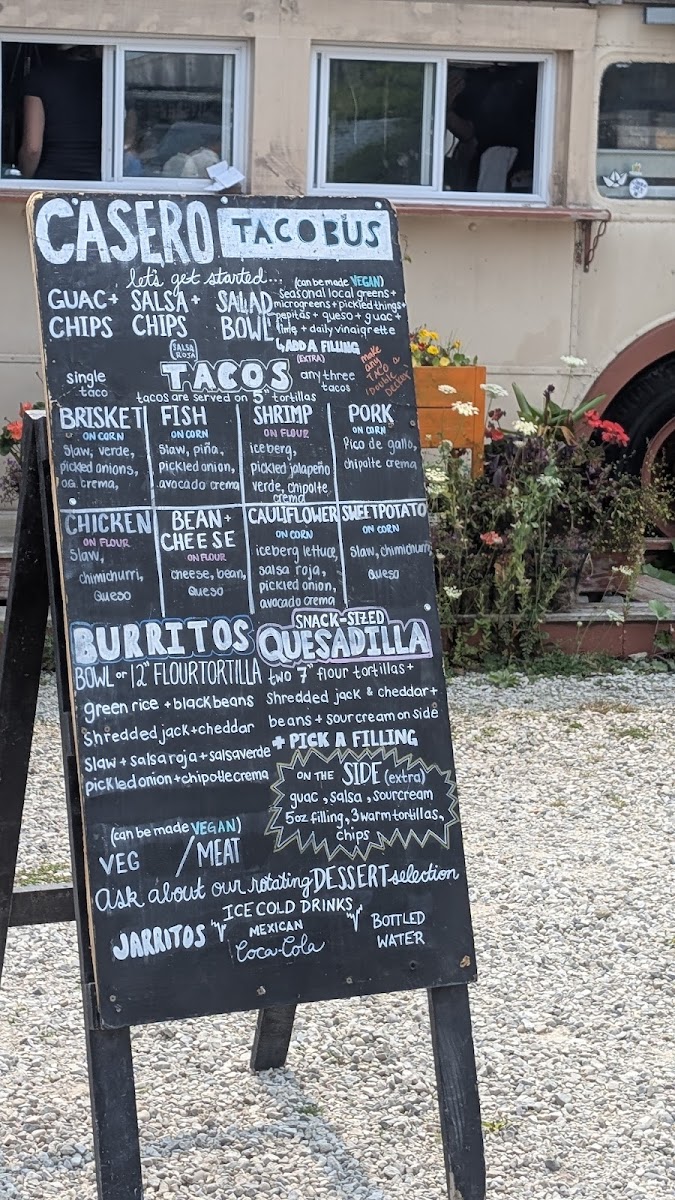 CASERO TACO BUS
let's get started...
GUAC + CHIPS
SALSA + CHIPS
SALAD BOWL
(can be made VEGAN)
seasonal local greens +
microgreens + pickled things +
pepitas + queso + guac +
lime + daily vinaigrette
ADD A FILLING
(EXTRA)
SALSA ROJA
TACOS
make any TACO a "Double DECKER"
single taco
any three tacos
tacos are served on 5" tortillas
BRISKET
ON CORN
slaw, verde,
pickled onions,
crema,
FISH
ON CORN
slaw, piña,
pickled onion,
avocado crema
SHRIMP
ON FLOUR
iceberg,
pickled jalapeño
verde, chipotle
crema
PORK
ON CORN
Pico de gallo,
chipotle crema
CHICKEN
ON FLOUR
slaw,
chimichurri,
queso
BEAN +
CHEESE
ON FLOUR
cheese, bean,
queso
CAULIFLOWER
ON CORN
iceberg lettuce,
salsa roja,
pickled onion,
avocado crema
SWEET POTATO
ON CORN
slaw, chimichurri,
queso
BURRITOS
BOWL or 12" FLOUR TORTILLA
green rice + black beans
shredded jack + cheddar
slaw + salsa roja + salsa verde
pickled onion + chipotle crema
(can be made VEGAN)
VEG / MEAT
SNACK-SIZED
QUESADILLA
two 7" flour tortillas +
shredded jack & cheddar +
beans + sour cream on side
+ PICK A FILLING
ON THE SIDE (extra)
guac, salsa, sourcream
5oz filling, 3 warm tortillas,
chips
Ask about our rotating DESSERT selection
ICE COLD DRINKS
JARRITOS
MEXICAN
Coca-Cola
BOTTLED
WATER